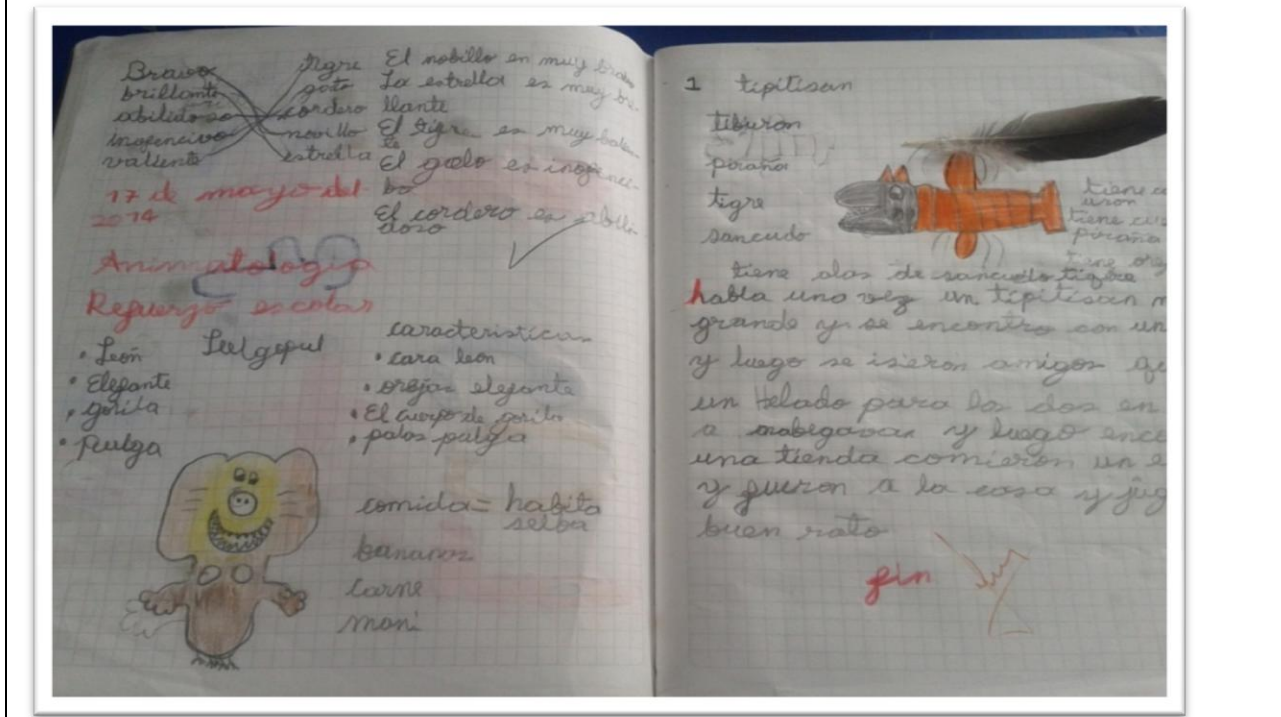 Bravo
brillante
abilidoso
inofencivo
valiente
tigre
gato
cordero
novillo
estrella
El nobillo en muy bravo
La estrella es muy bri-
llante
El tigre es muy balien-
te
El gato es inofenci-
bo
El cordero es abili-
doso
17 de mayo del
2014
Animatologia
Refuerzo escolar
Leelgopul
• León
• Elefante
• gorila
• Pulga
caracteristicas
• cara leon
• orejas elefante
• El cuerpo de gorila
• patas pulga
comida= habita
selba
bananos
carne
mani
1 tipitisan
tiburon
piraña
tigre
sancudo
tiene
tiene
piraña
tiene
tiene alas de sancudo tigre
habla una vez un tipitisan
grande y se encontro con un
y luego se isieron amigos
un Helado para los dos en
a nabegavar y luego
una tienda comieron un
y fueron a la casa y jug
buen rato
fin